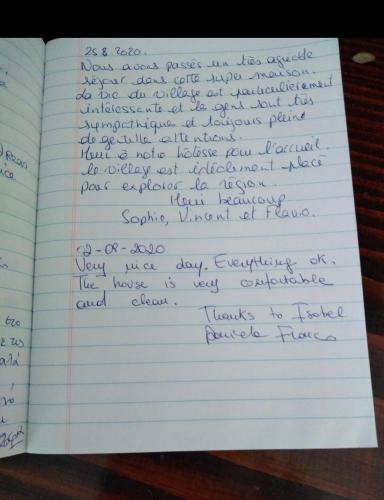 25.8.2020.
Nous avons passés un très agréable
séjour dans cette super maison.
La vie du village est particulièrement
intéressante et le gens sont très
sympathique et toujours plein
de gentille attentions.
Merci à notre hôtesse pour l'accueil.
Le village est idéalement placé
pour explorer la région.
Merci beaucoup
Sophie, Vincent et Flavio.
02-09-2020
Very nice day. Everything ok.
The house is very comfortable
and clean.
Thanks to Isabel
Daniela Franco